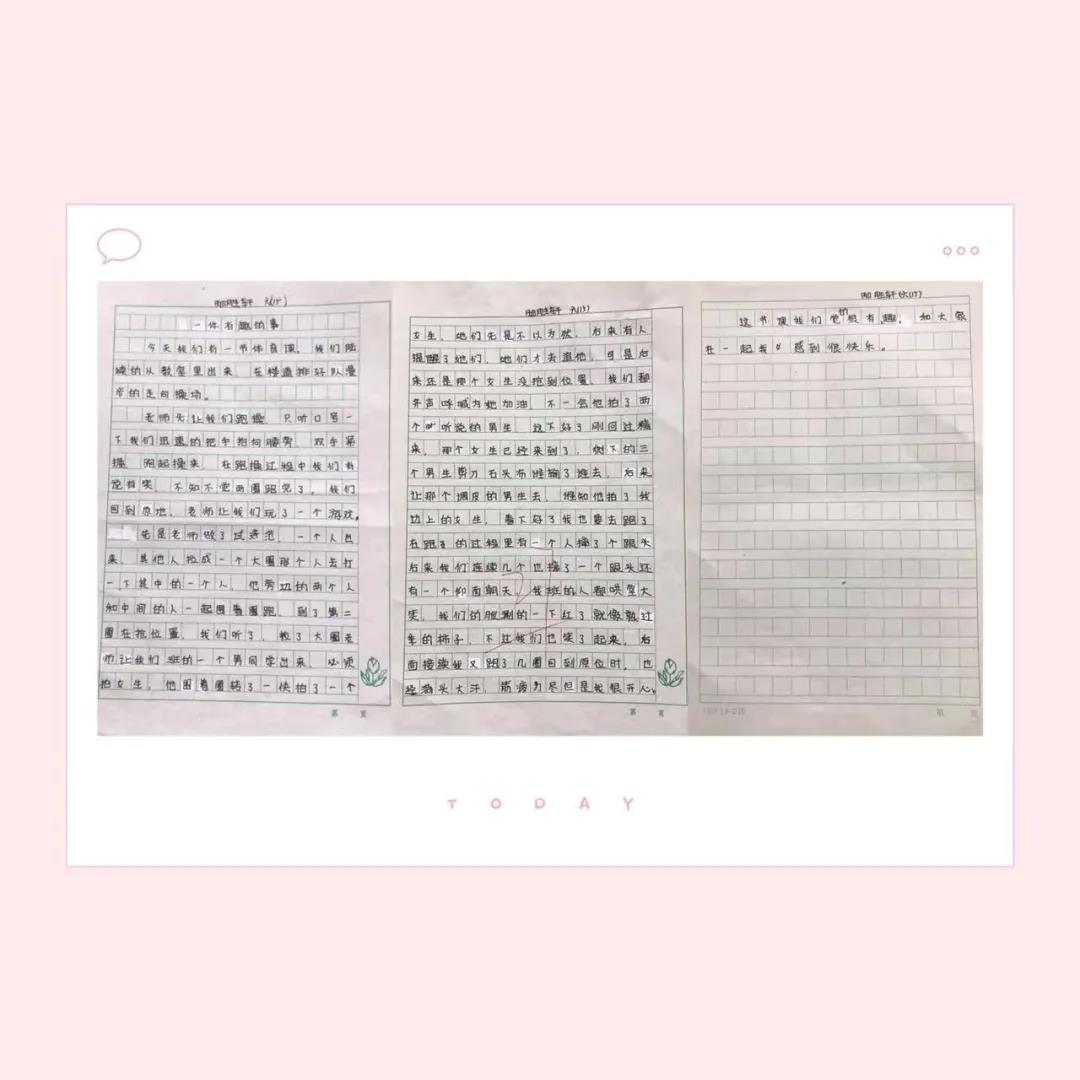 一件有趣的事
今天我们有一节体育课，我们陆
续的从教室里出来，在楼道排好队漫
步的走向操场。
老师先让我们跑操，只听口号一
下我们迅速的把手抱向腰旁，双手第
操，跑起操来，在跑操过程中我们有
说有笑，不知不觉两圈跑完了，我们
回到原地，老师让我们玩了一个游戏。
先是老师做了试范，一个人出
来，其他人拉成一个大圈那个人去打
一下其中的一个人，他旁边的两个人
和中间的人一起围着圈跑，到了第二
圈在抢位置，我们听了，散了大圈老
师让我们班的一个男同学出来，必须
拍女生，他围着圈转了一快拍了一个
女生，她们先是不以为然，后来有人
提醒了她们，她们才去追他，可是后
来还是那个女生没抢到位置，我们都
齐声呼喊为她加油，不一会他拍了两
个听说的男生，这下好了刚回过精
来，那个女生已经来到了，剩下的三
个男生剪刀石头布谁输了谁去，后来
让那个调皮的男生去，谁知他拍了我
边上的女生，着下好了我也要去跑了
在跑的过程里有一个人摔了个跟头
后来我们连续几个也摔了一个跟头还
有一个仰面朝天，我班的人都哄堂大
笑，我们的脸唰的一下红了就像熟过
车的柿子，不过我们也笑了起来，后
面接续我又跑了几圈回到原位时，也
经满头大汗，筋疲力尽但是我很开心。
这节课我们觉的很有趣，和大家
在一起我感到很快乐。
第 页
第 页
第 页
TODAY